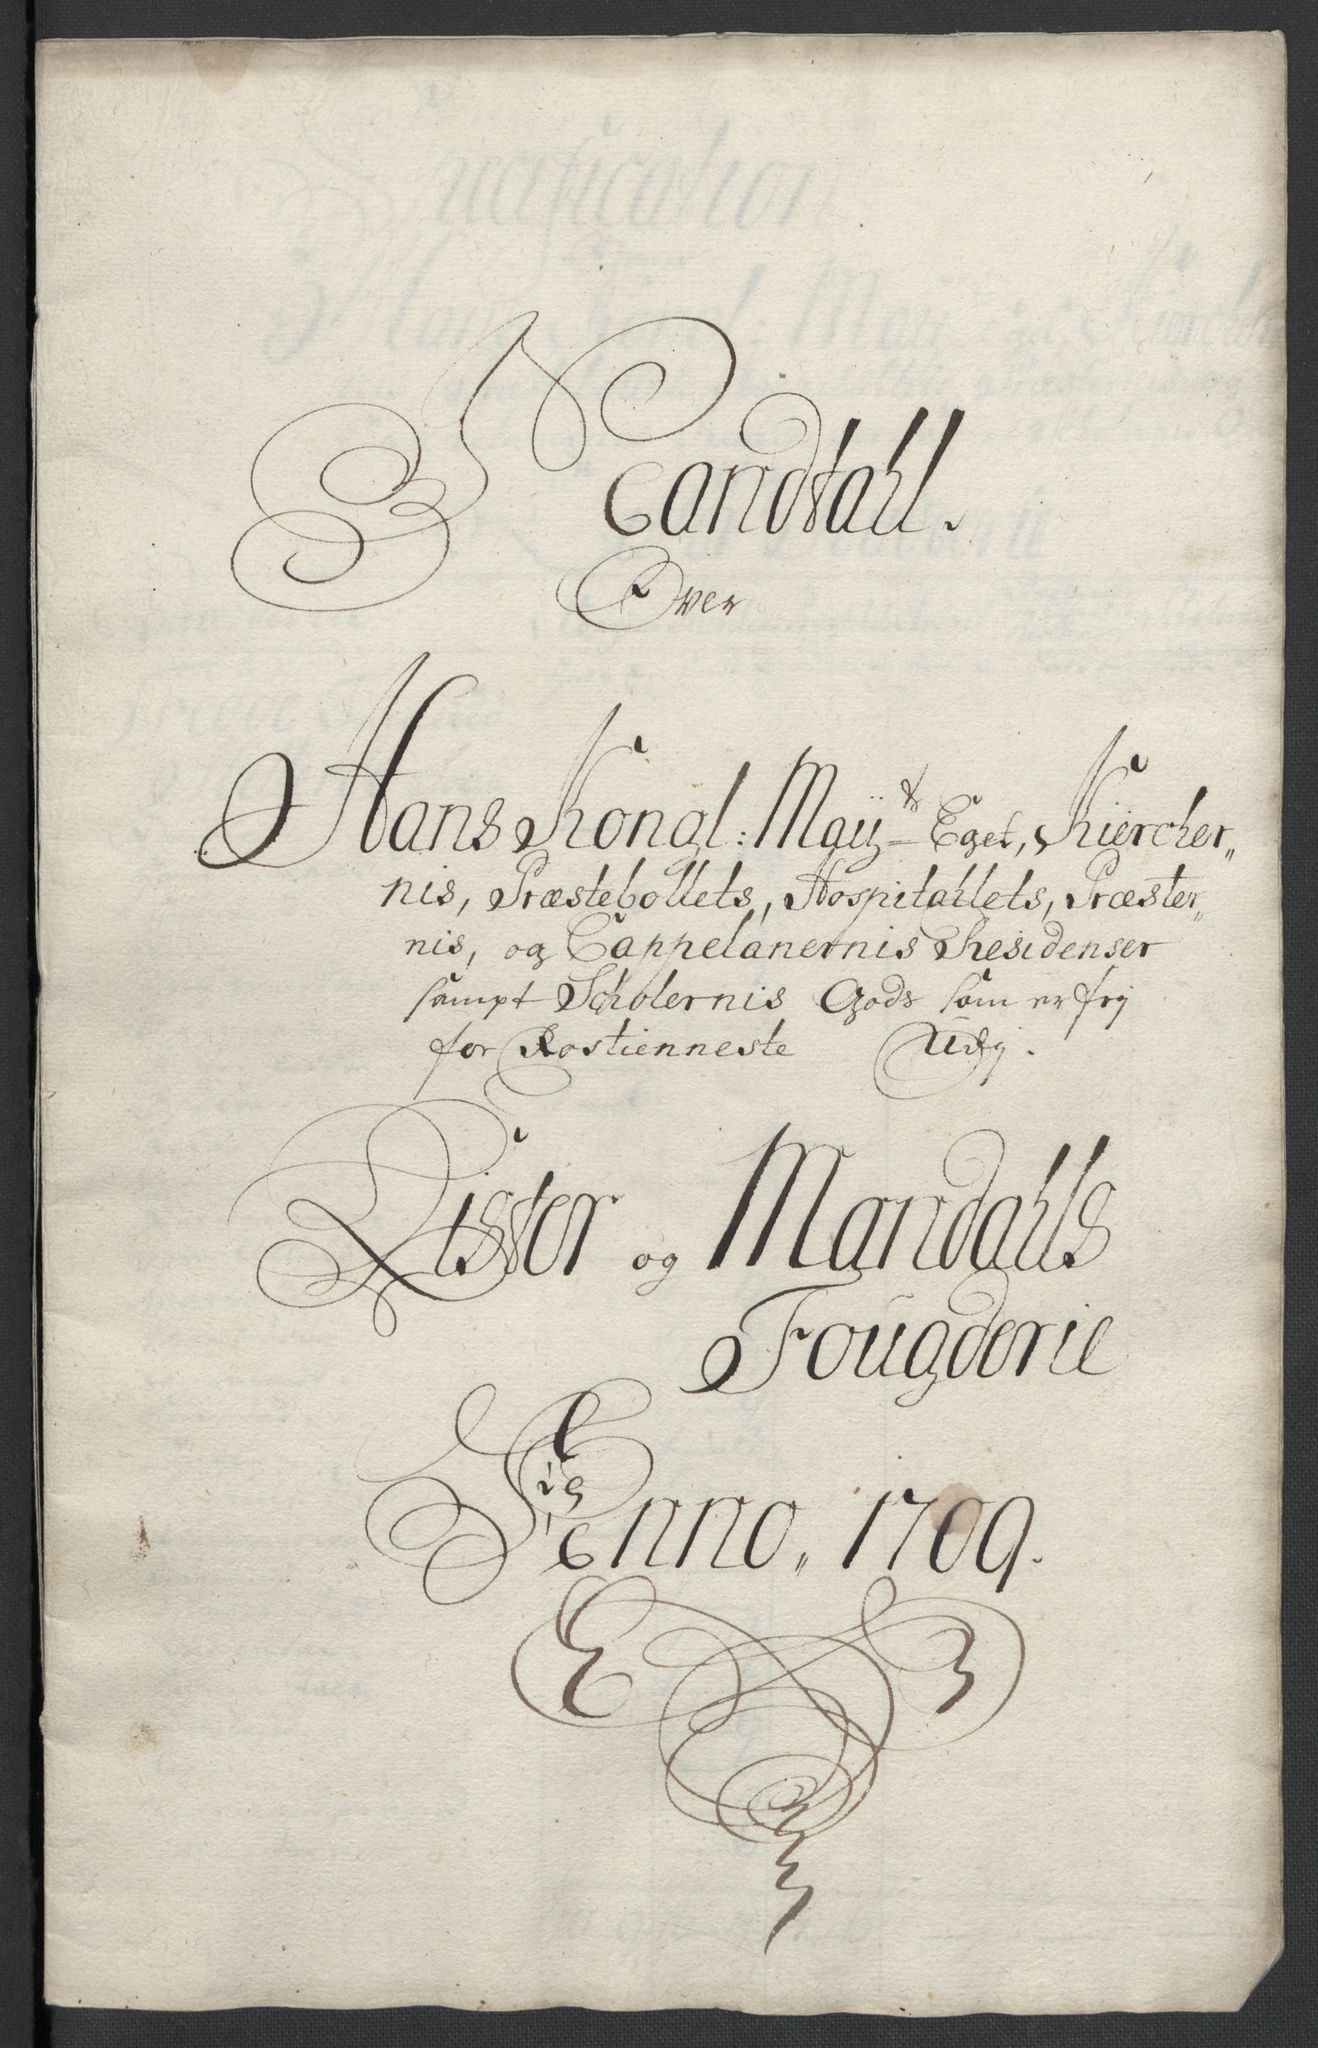 Mandtahl.
Over
Hans Kongl: Maÿ:ts Eget, Kiercher„
nis, Præstebollets, Hospitahlets, Præster„
nis, og Cappelanernis Residenser
sampt Scholernis Gods som er frj
for Rostienneste Udj.
Lister og Mandahls
Fougderie
Anno„ 1709.